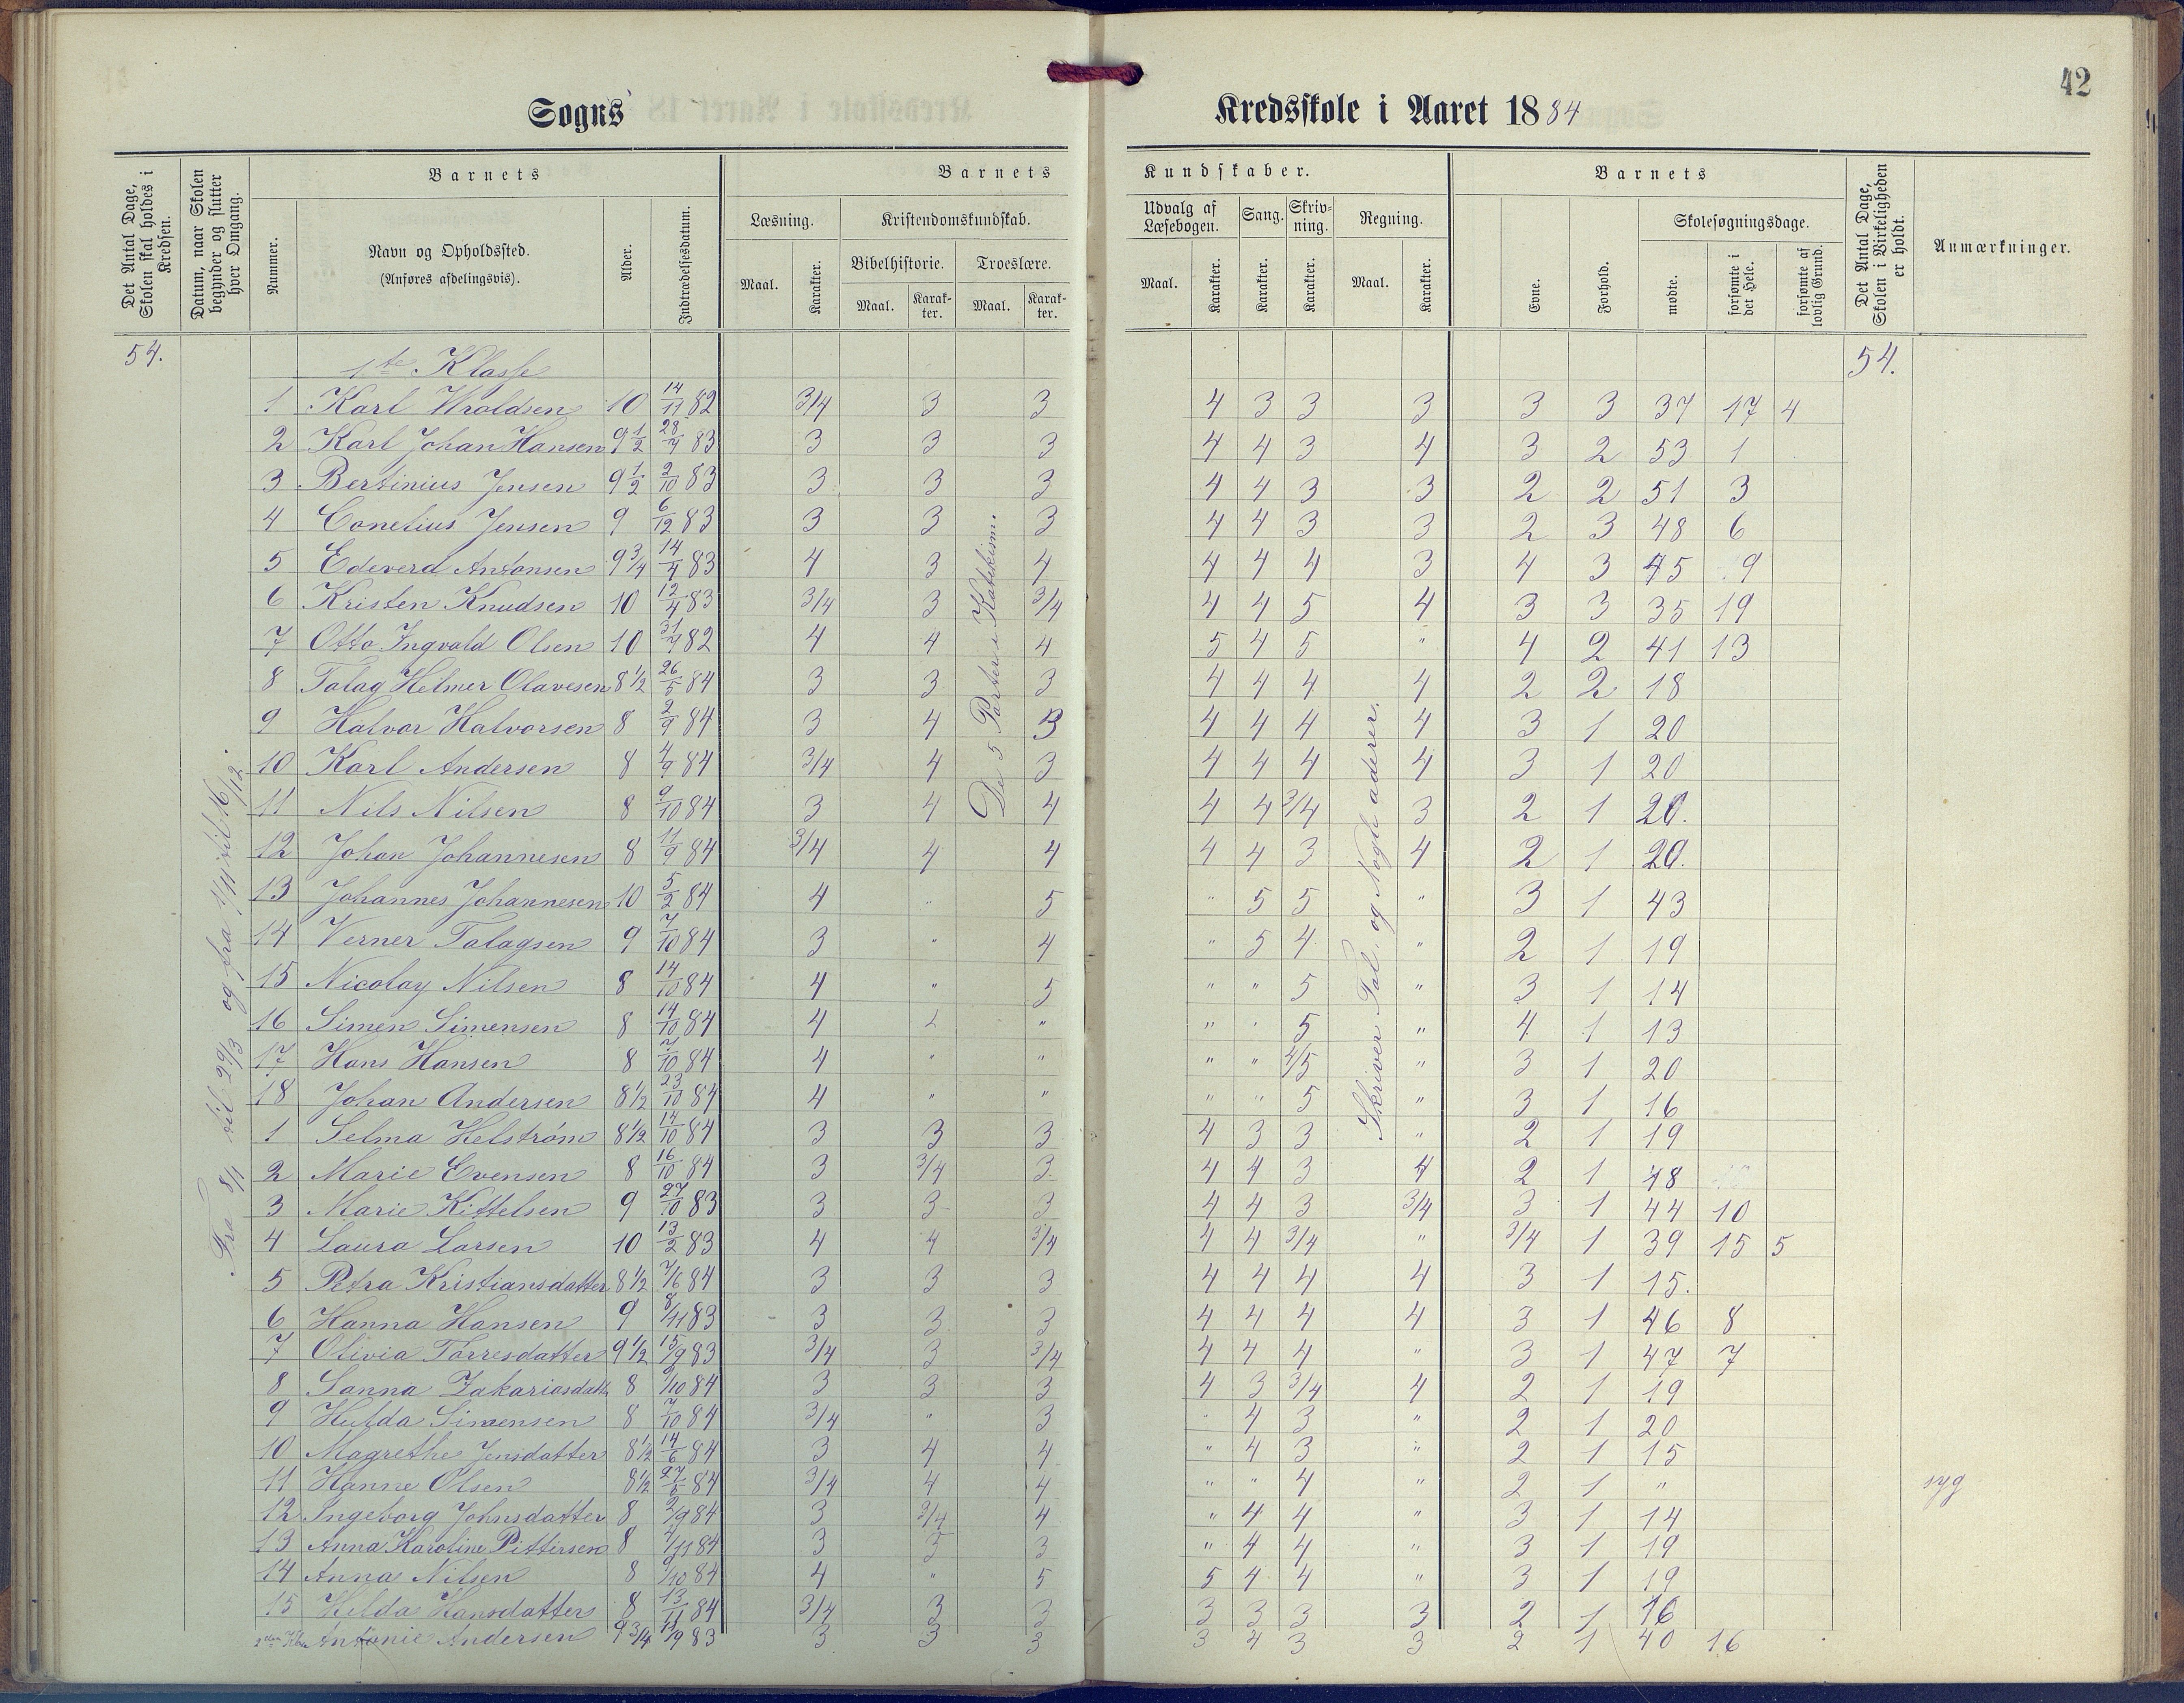 42
Sogns Kredsskole i Aaret 1884
Det Antal Dage, Skolen skal holdes i Kredsen.
Datum, naar Skolen begynder og slutter hver Omgang.
Barnets
Nummer.
Navn og Opholdssted.
(Anføres afdelingsvis).
Alder.
Indtrædelsesdatum.
Barnets Kundskaber.
Læsning.
Maal. Karakter.
Kristendomskundskab.
Bibelhistorie. Troeslære.
Maal. Karakter. Maal. Karakter.
Udvalg af Læsebogen. Sang. Skrivning. Regning.
Maal. Karakter. Karakter. Karakter. Maal. Karakter.
Barnets
Evne. Forhold.
Skolesøgningsdage.
mødte. forsømte i det Hele. forsømte af lovlig Grund.
Det Antal Dage, Skolen i Virkeligheden er holdt.
Anmærkninger.
54. 1te Klasse 54.
Fra 8/1 til 29/3 og fra 1/11 til 16/12.
De 5 Parter i Katekism.
Skriver Tal. og Nogle aderer.
1 Karl Wroldsen 10 14/11 82 3/4 3 3 4 3 3 3 3 3 37 17 4
2 Karl Johan Hansen 9 1/2 28/4 83 3 3 3 4 4 3 4 3 2 53 1
3 Bertinius Jensen 9 1/2 2/10 83 3 3 3 4 4 3 3 2 2 51 3
4 Conelius Jensen 9 6/12 83 3 3 3 4 4 3 3 2 3 48 6
5 Edeverd Antonsen 9 3/4 14/4 83 4 3 4 4 4 4 3 4 3 45 9
6 Kristen Knudsen 10 12/4 83 3/4 3 3/4 4 4 5 4 3 3 35 19
7 Otto Ingvald Olsen 10 31/7 82 4 4 4 5 4 5 " 4 2 41 13
8 Talag Helmer Olavesen 8 1/2 26/5 84 3 3 3 4 4 4 4 2 2 18
9 Halvor Halvorsen 8 2/9 84 3 4 3 4 4 4 4 3 1 20
10 Karl Andersen 8 4/9 84 3/4 4 3 4 4 4 4 3 1 20
11 Nils Nilsen 8 9/10 84 3 4 4 4 4 3/4 3 2 1 20.
12 Johan Johannesen 8 11/9 84 3/4 4 4 4 4 3 4 2 1 20.
13 Johannes Johannesen 10 5/2 84 4 " 5 " 5 5 " 3 1 43
14 Verner Talagsen 9 7/10 84 3 " 4 " 5 4 " 2 1 19
15 Nicolay Nilsen 8 14/10 84 4 " 5 " " 5 " 3 1 14
16 Simen Simensen 8 14/10 84 4 " " " 5 " 4 1 13
17 Hans Hansen 8 7/10 84 4 " " " " 4/5 " 3 1 20
18 Johan Andersen 8 1/2 23/10 84 4 " " " " 5 " 3 1 16
1 Selma Helstrøm 8 1/2 14/10 84 3 3 3 4 3 3 " 2 1 19
2 Marie Evensen 8 16/10 84 3 3/4 3 4 4 3 4 2 1 18
3 Marie Kittelsen 9 27/10 83 3 3 3 4 4 3 3/4 3 1 44 10
4 Laura Larsen 10 13/2 83 4 4 3/4 4 4 3/4 " 3/4 1 39 15 5
5 Petra Kristiansdatter 8 1/2 7/6 84 3 3 3 4 4 4 4 3 1 15.
6 Hanna Hansen 9 8/11 83 3 3 3 4 4 4 4 3 1 46 8
7 Olivia Tørresdatter 9 1/2 15/9 83 3/4 3 3/4 4 4 4 " 3 1 47 7
8 Sanna Zakariasdatt 8 9/10 84 3 3 3 4 3 3/4 4 2 1 19
9 Hulda Simensen 8 7/10 84 3/4 " 3 " 4 3 " 2 1 20
10 Magrethe Jensdatter 8 1/2 14/6 84 3 4 4 " 4 3 " 2 1 15
11 Hanne Olsen 8 1/2 27/5 84 3/4 4 4 " " 4 " 2 1 " syg
12 Ingeborg Johnsdatter 8 2/9 84 3 3/4 4 " 4 4 " 3 1 14
13 Anna Karoline Pittersen 8 4/11 84 3 3 3 " 4 4 " 3 1 19
14 Anna Nilsen 8 9/10 84 4 " 5 5 4 4 " 3 1 19
15 Helda Hansdatter 8 13/11 84 3/4 3 3 3 3 3 3 2 1 16
2den Kl. Antonie Andersen 9 3/4 11/9 83 3 3 3 3 4 3 3 2 1 40 16